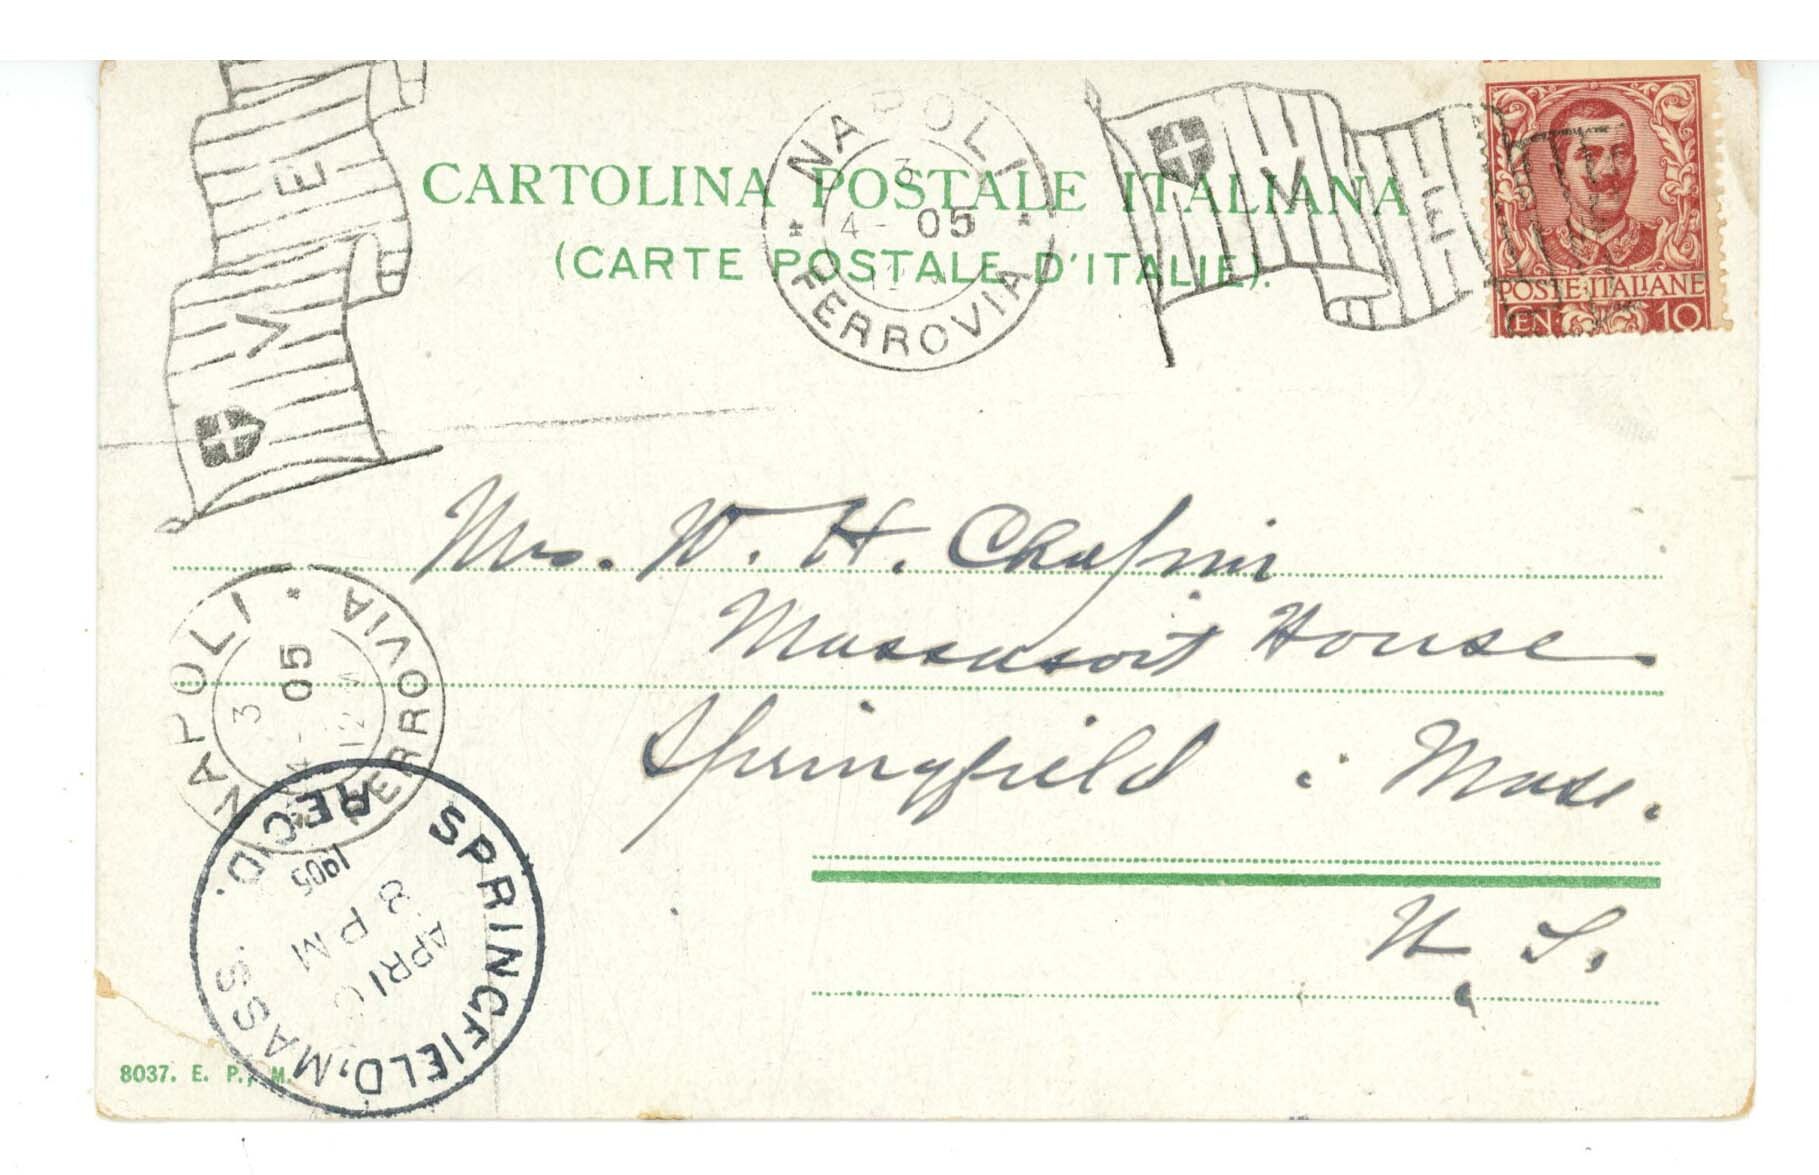 CARTOLINA POSTALE ITALIANA
(CARTE POSTALE D'ITALIE).
NAPOLI
3
4- 05
12
* FERROVIA *
V E
POSTE ITALIANE
CEN. 10
V E
Mrs. W. H. Chapin
Massasoit House.
Springfield. Mass.
U. S.
NAPOLI * FERROVIA
3
4- 05
12 M
SPRINGFIELD, MASS. REC'D.
APR
8 PM
1905
8037. E. P. M.